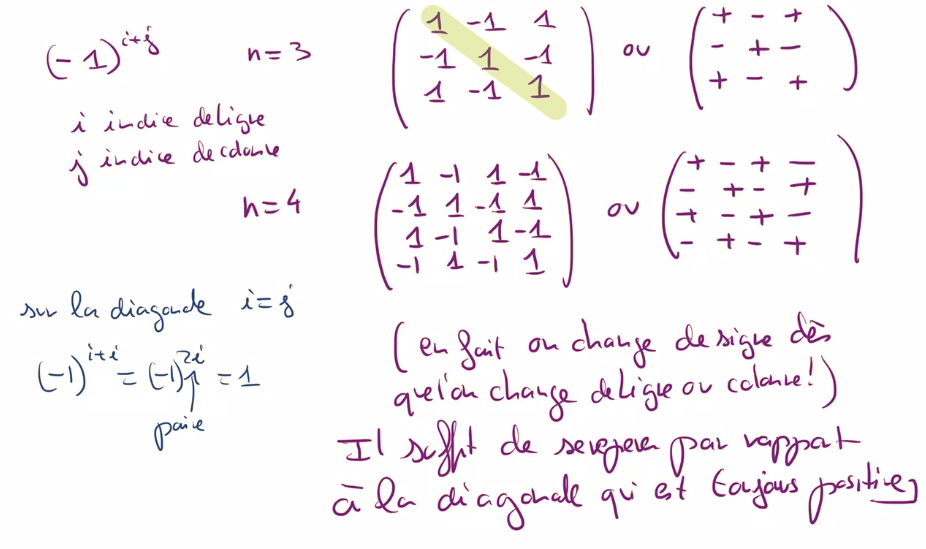 (-1)^{i+j}
n=3
( 1 -1 1
-1 1 -1
1 -1 1 )
ou
( + - +
- + -
+ - + )
i indice de ligne
j indice de colonne
n=4
( 1 -1 1 -1
-1 1 -1 1
1 -1 1 -1
-1 1 -1 1 )
ou
( + - + -
- + - +
+ - + -
- + - + )
sur la diagonale i=j
(-1)^{i+i} = (-1)^{2i} = 1
↑
paire
(en fait on change de signe dès
qu'on change de ligne ou colonne!)
Il suffit de se repérer par rapport
à la diagonale qui est toujours positive